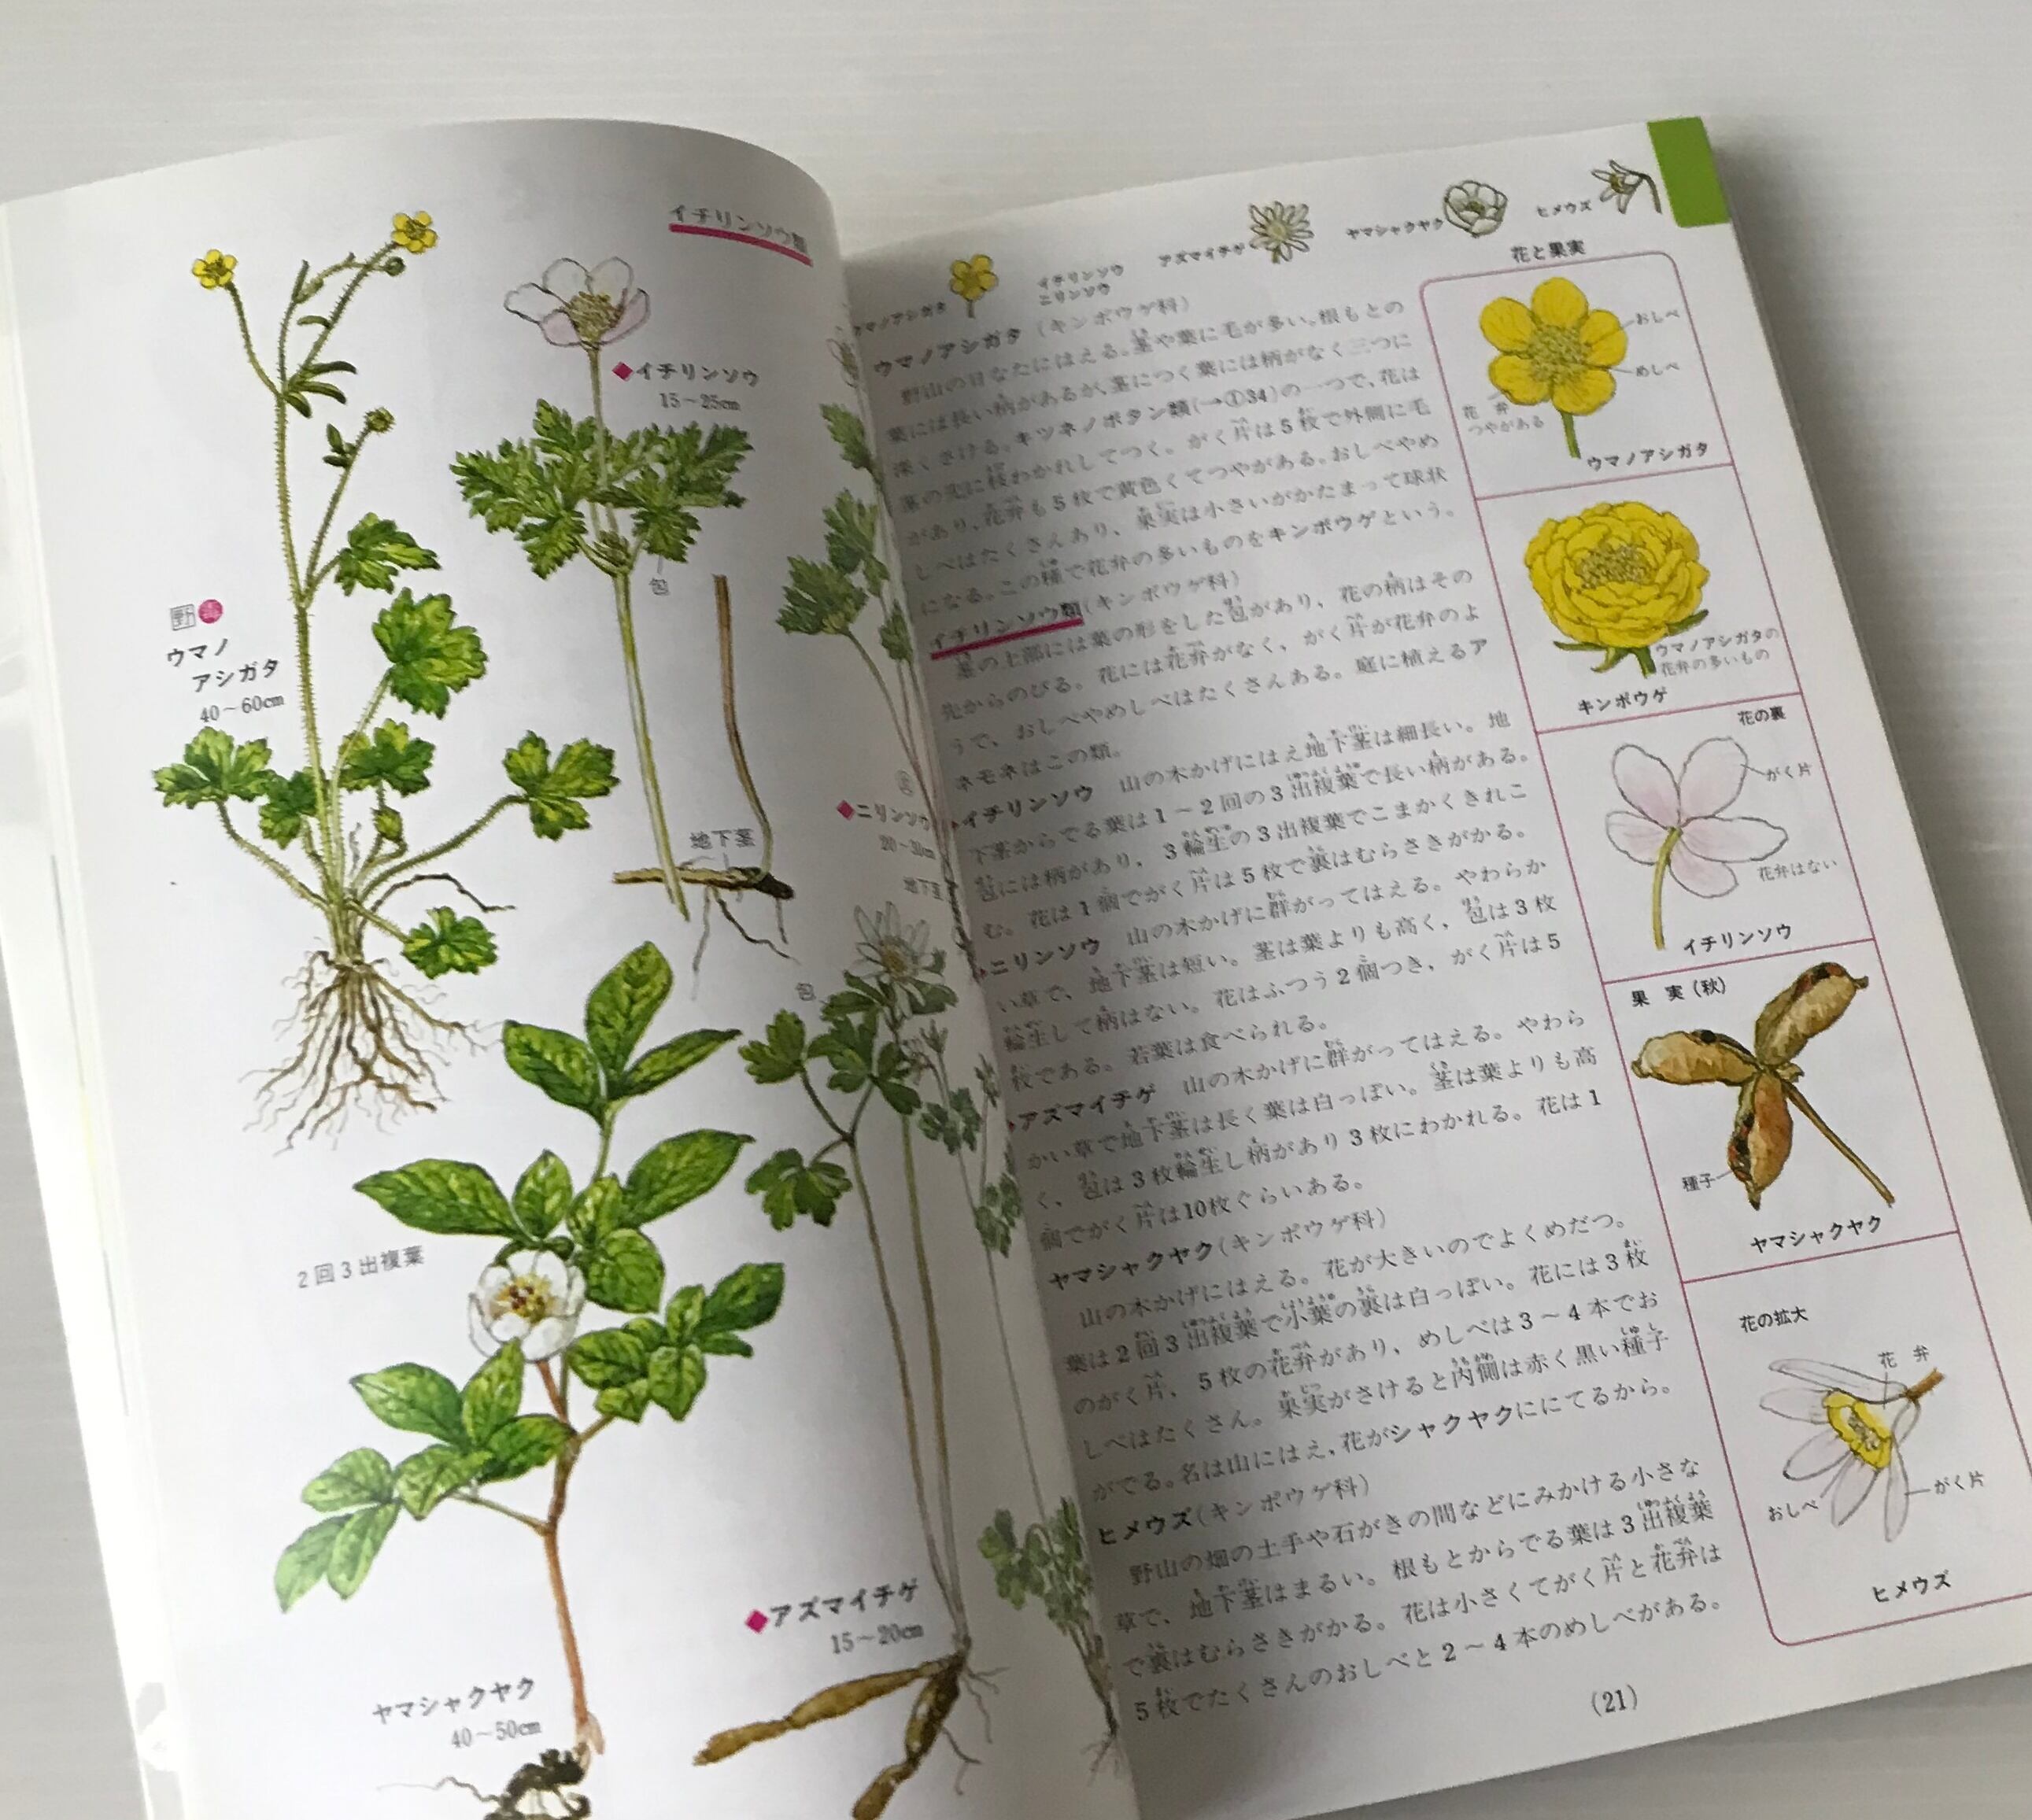 イチリンソウ類
イチリンソウ
15～25cm
包
野
ウマノ
アシガタ
40～60cm
地下茎
ニリンソウ
20～30cm
地下茎
包
2回3出複葉
アズマイチゲ
15～20cm
ヤマシャクヤク
40～50cm
ウマノアシガタ
イチリンソウ
ニリンソウ
アズマイチゲ
ヤマシャクヤク
ヒメウズ
ウマノアシガタ（キンポウゲ科）
野山の日なたにはえる。茎や葉に毛が多い。根もとの
葉には長い柄があるが、茎につく葉には柄がなく三つに
深くさける。キツネノボタン類(→①34)の一つで、花は
茎の先に枝わかれしてつく。がく片は5枚で外側に毛
があり、花弁も5枚で黄色くてつやがある。おしべやめ
しべはたくさんあり、果実は小さいがかたまって球状
になる。この種で花弁の多いものをキンポウゲという。
イチリンソウ類(キンポウゲ科)
茎の上部には葉の形をした包があり、花の柄はその
先からのびる。花には花弁がなく、がく片が花弁のよ
うで、おしべやめしべはたくさんある。庭に植えるア
ネモネはこの類。
イチリンソウ　山の木かげにはえ地下茎は細長い。地
下茎からでる葉は1～2回の3出複葉で長い柄がある。
包には柄があり、3輪生の3出複葉でこまかくきれこ
む。花は1個でがく片は5枚で裏はむらさきがかる。
ニリンソウ　山の木かげに群がってはえる。やわらか
い草で、地下茎は短い。茎は葉よりも高く、包は3枚
輪生して柄はない。花はふつう2個つき、がく片は5
枚である。若葉は食べられる。
アズマイチゲ　山の木かげに群がってはえる。やわら
かい草で地下茎は長く葉は白っぽい。茎は葉よりも高
く、包は3枚輪生し柄があり3枚にわかれる。花は1
個でがく片は10枚ぐらいある。
ヤマシャクヤク(キンポウゲ科)
山の木かげにはえる。花が大きいのでよくめだつ。
葉は2回3出複葉で小葉の裏は白っぽい。花には3枚
のがく片、5枚の花弁があり、めしべは3～4本でお
しべはたくさん。果実がさけると内側は赤く黒い種子
がでる。名は山にはえ、花がシャクヤクににてるから。
ヒメウズ(キンポウゲ科)
野山の畑の土手や石がきの間などにみかける小さな
草で、地下茎はまるい。根もとからでる葉は3出複葉
で裏はむらさきがかる。花は小さくてがく片と花弁は
5枚でたくさんのおしべと2～4本のめしべがある。
花と果実
おしべ
めしべ
花弁
つやがある
ウマノアシガタ
ウマノアシガタの
花弁の多いもの
キンポウゲ
花の裏
がく片
花弁はない
イチリンソウ
果実(秋)
種子
ヤマシャクヤク
花の拡大
花弁
おしべ
がく片
ヒメウズ
(21)